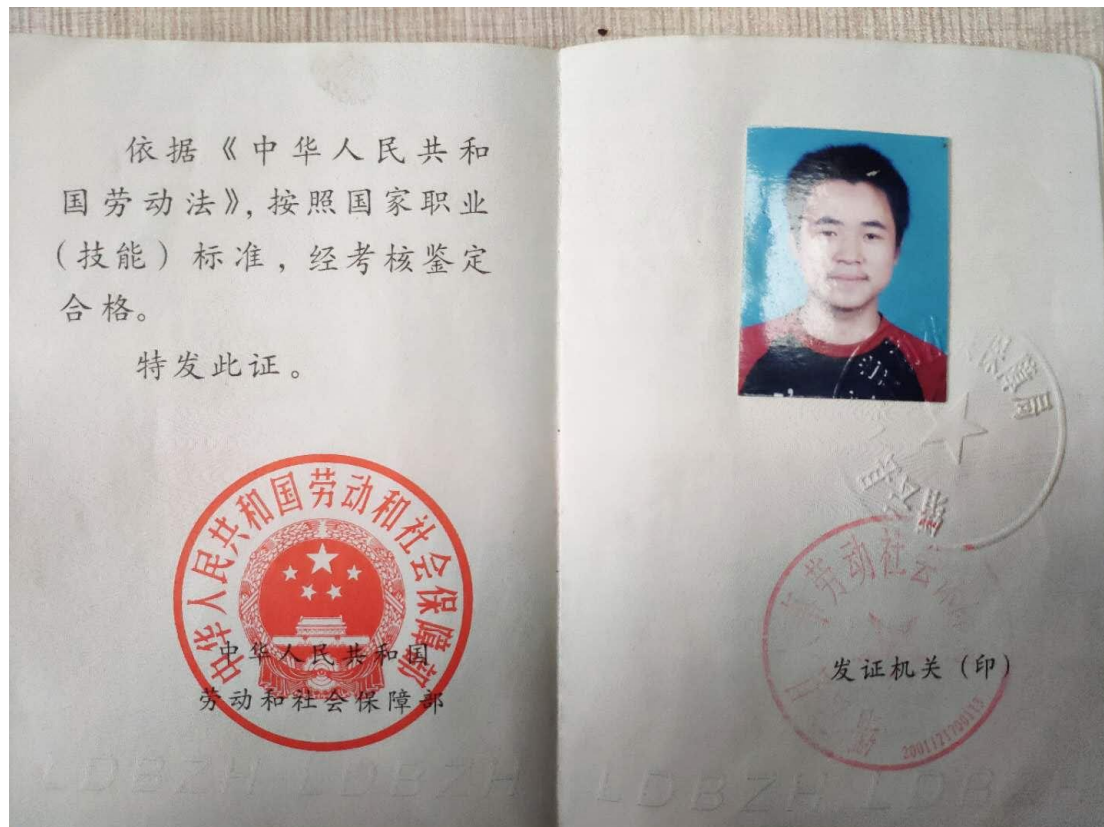 依据《中华人民共和
国劳动法》，按照国家职业
（技能）标准，经考核鉴定
合格。
特发此证。
中华人民共和国劳动和社会保障部
中华人民共和国
劳动和社会保障部
LDBZH LDBZH
保障局
劳动社会
发证机关（印）
LDBZH LDBZH